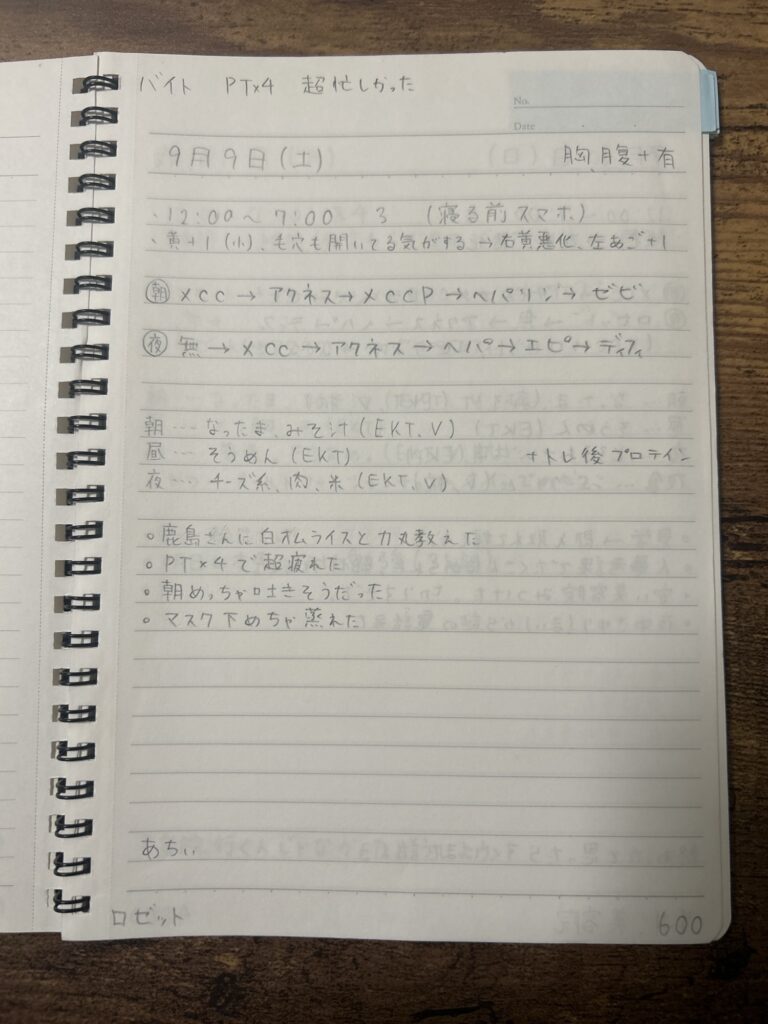 バイト PT×4 超忙しかった
No.
Date
9月9日(土) 胸、腹+有
・12:00〜7:00 3 (寝る前スマホ)
・黄+1(小)、毛穴も開いてる気がする→右黄悪化、左あご+1
朝 メCC→アクネス→メCCP→ヘパリン→ゼビ
夜 無→メCC→アクネス→ヘパ→エピ→ディフィ
朝…なったま、みそ汁(EKT、V)
昼…そうめん(EKT) +トレ後プロテイン
夜…チーズ系、肉、米(EKT、V)
○鹿島さんに白オムライスと力丸教えた
○PT×4で超疲れた
○朝めっちゃ吐きそうだった
○マスク下めちゃ蒸れた
あちぃ
ロゼット 600